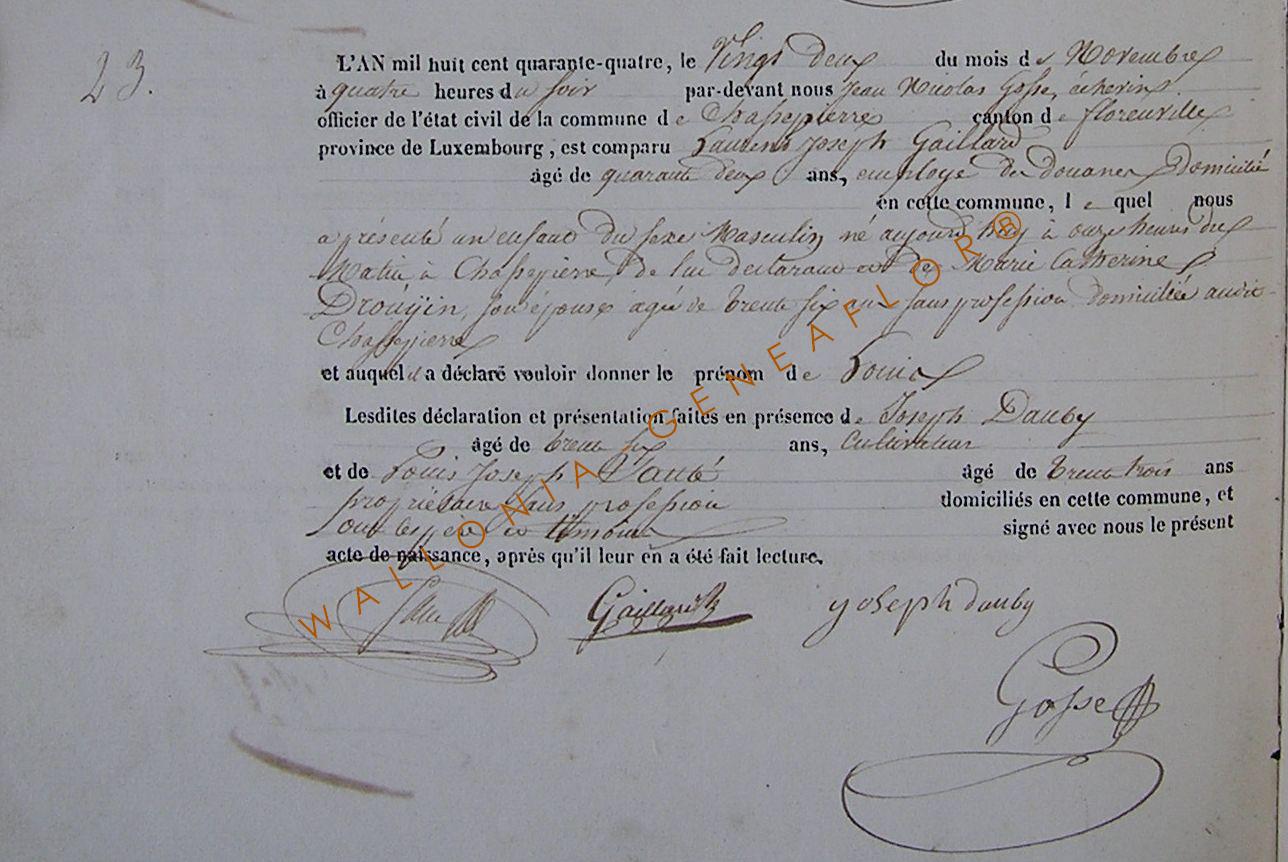 23.
L'AN mil huit cent quarante-quatre, le Vingt deux du mois de Novembre
à quatre heures du soir par-devant nous Jean Nicolas Gosse, échevin
officier de l'état civil de la commune de Chassepierre canton de florenville
province de Luxembourg, est comparu Laurent Joseph Gaillard
âgé de quarante deux ans, employé des douanes domicilié
en cette commune, lequel nous
a présenté un enfant du sexe Masculin né aujourd'huy à onze heures du
Matin à Chassepierre de lui déclarant et de Marie Catherine
Drouijin, son épouse agée de trente six ans sans profession domiciliée audit
Chassepierre
et auquel il a déclaré vouloir donner le prénom de Louis
Lesdites déclaration et présentation faites en présence de Joseph Dauby
âgé de trente six ans, Cultivateur
et de Louis Joseph âgé de trente trois ans
propriétaire sans profession domiciliés en cette commune, et
ont les père et témoins signé avec nous le présent
acte de naissance, après qu'il leur en a été fait lecture.
Gaillard joseph dauby
Gosse
WALLONIA GENEAFLOR®